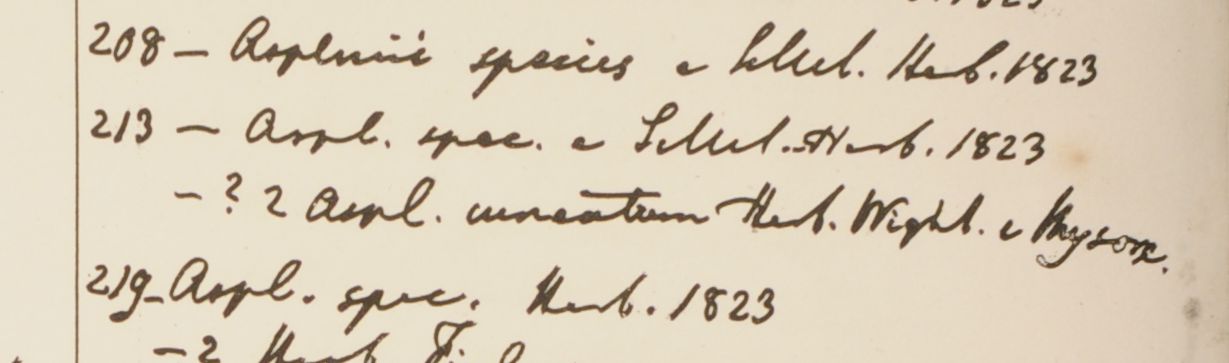 208 — Asplenii species e Silhet. Herb. 1823
213 — Aspl. spec. e Silhet. Herb. 1823
— ? 2 Aspl. cuneatum Herb. Wight. e Mysore.
219 — Aspl. spec. Herb. 1823
— 2 Herb.